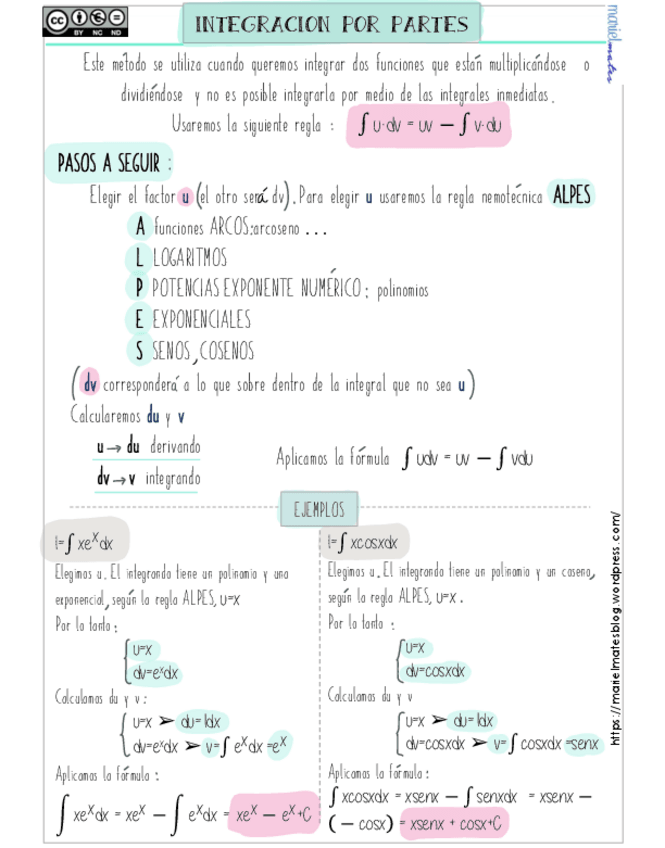 CC BY NC ND
INTEGRACION POR PARTES
marielmates
Este método se utiliza cuando queremos integrar dos funciones que están multiplicándose o
dividiéndose y no es posible integrarla por medio de las integrales inmediatas.
Usaremos la siguiente regla : ∫ u·dv = uv − ∫ v·du
PASOS A SEGUIR :
Elegir el factor u (el otro será dv). Para elegir u usaremos la regla nemotécnica ALPES
A funciones ARCOS:arcoseno ...
L LOGARITMOS
P POTENCIAS EXPONENTE NUMÉRICO : polinomios
E EXPONENCIALES
S SENOS, COSENOS
(dv corresponderá a lo que sobre dentro de la integral que no sea u)
Calcularemos du y v
u → du derivando
dv → v integrando
Aplicamos la fórmula ∫ udv = uv − ∫ vdu
EJEMPLOS
I=∫ xeˣdx
Elegimos u. El integrando tiene un polinomio y una
exponencial, según la regla ALPES, u=x
Por lo tanto :
u=x
dv=eˣdx
Calculamos du y v :
u=x ➤ du=1dx
dv=eˣdx ➤ v=∫ eˣdx =eˣ
Aplicamos la fórmula :
∫ xeˣdx = xeˣ − ∫ eˣdx = xeˣ − eˣ+C
I=∫ xcosxdx
Elegimos u. El integrando tiene un polinomio y un coseno,
según la regla ALPES, u=x .
Por lo tanto :
u=x
dv=cosxdx
Calculamos du y v
u=x ➤ du=1dx
dv=cosxdx ➤ v=∫ cosxdx =senx
Aplicamos la fórmula :
∫ xcosxdx = xsenx − ∫ senxdx = xsenx −
( − cosx) = xsenx + cosx+C
https://marielmatesblog.wordpress.com/